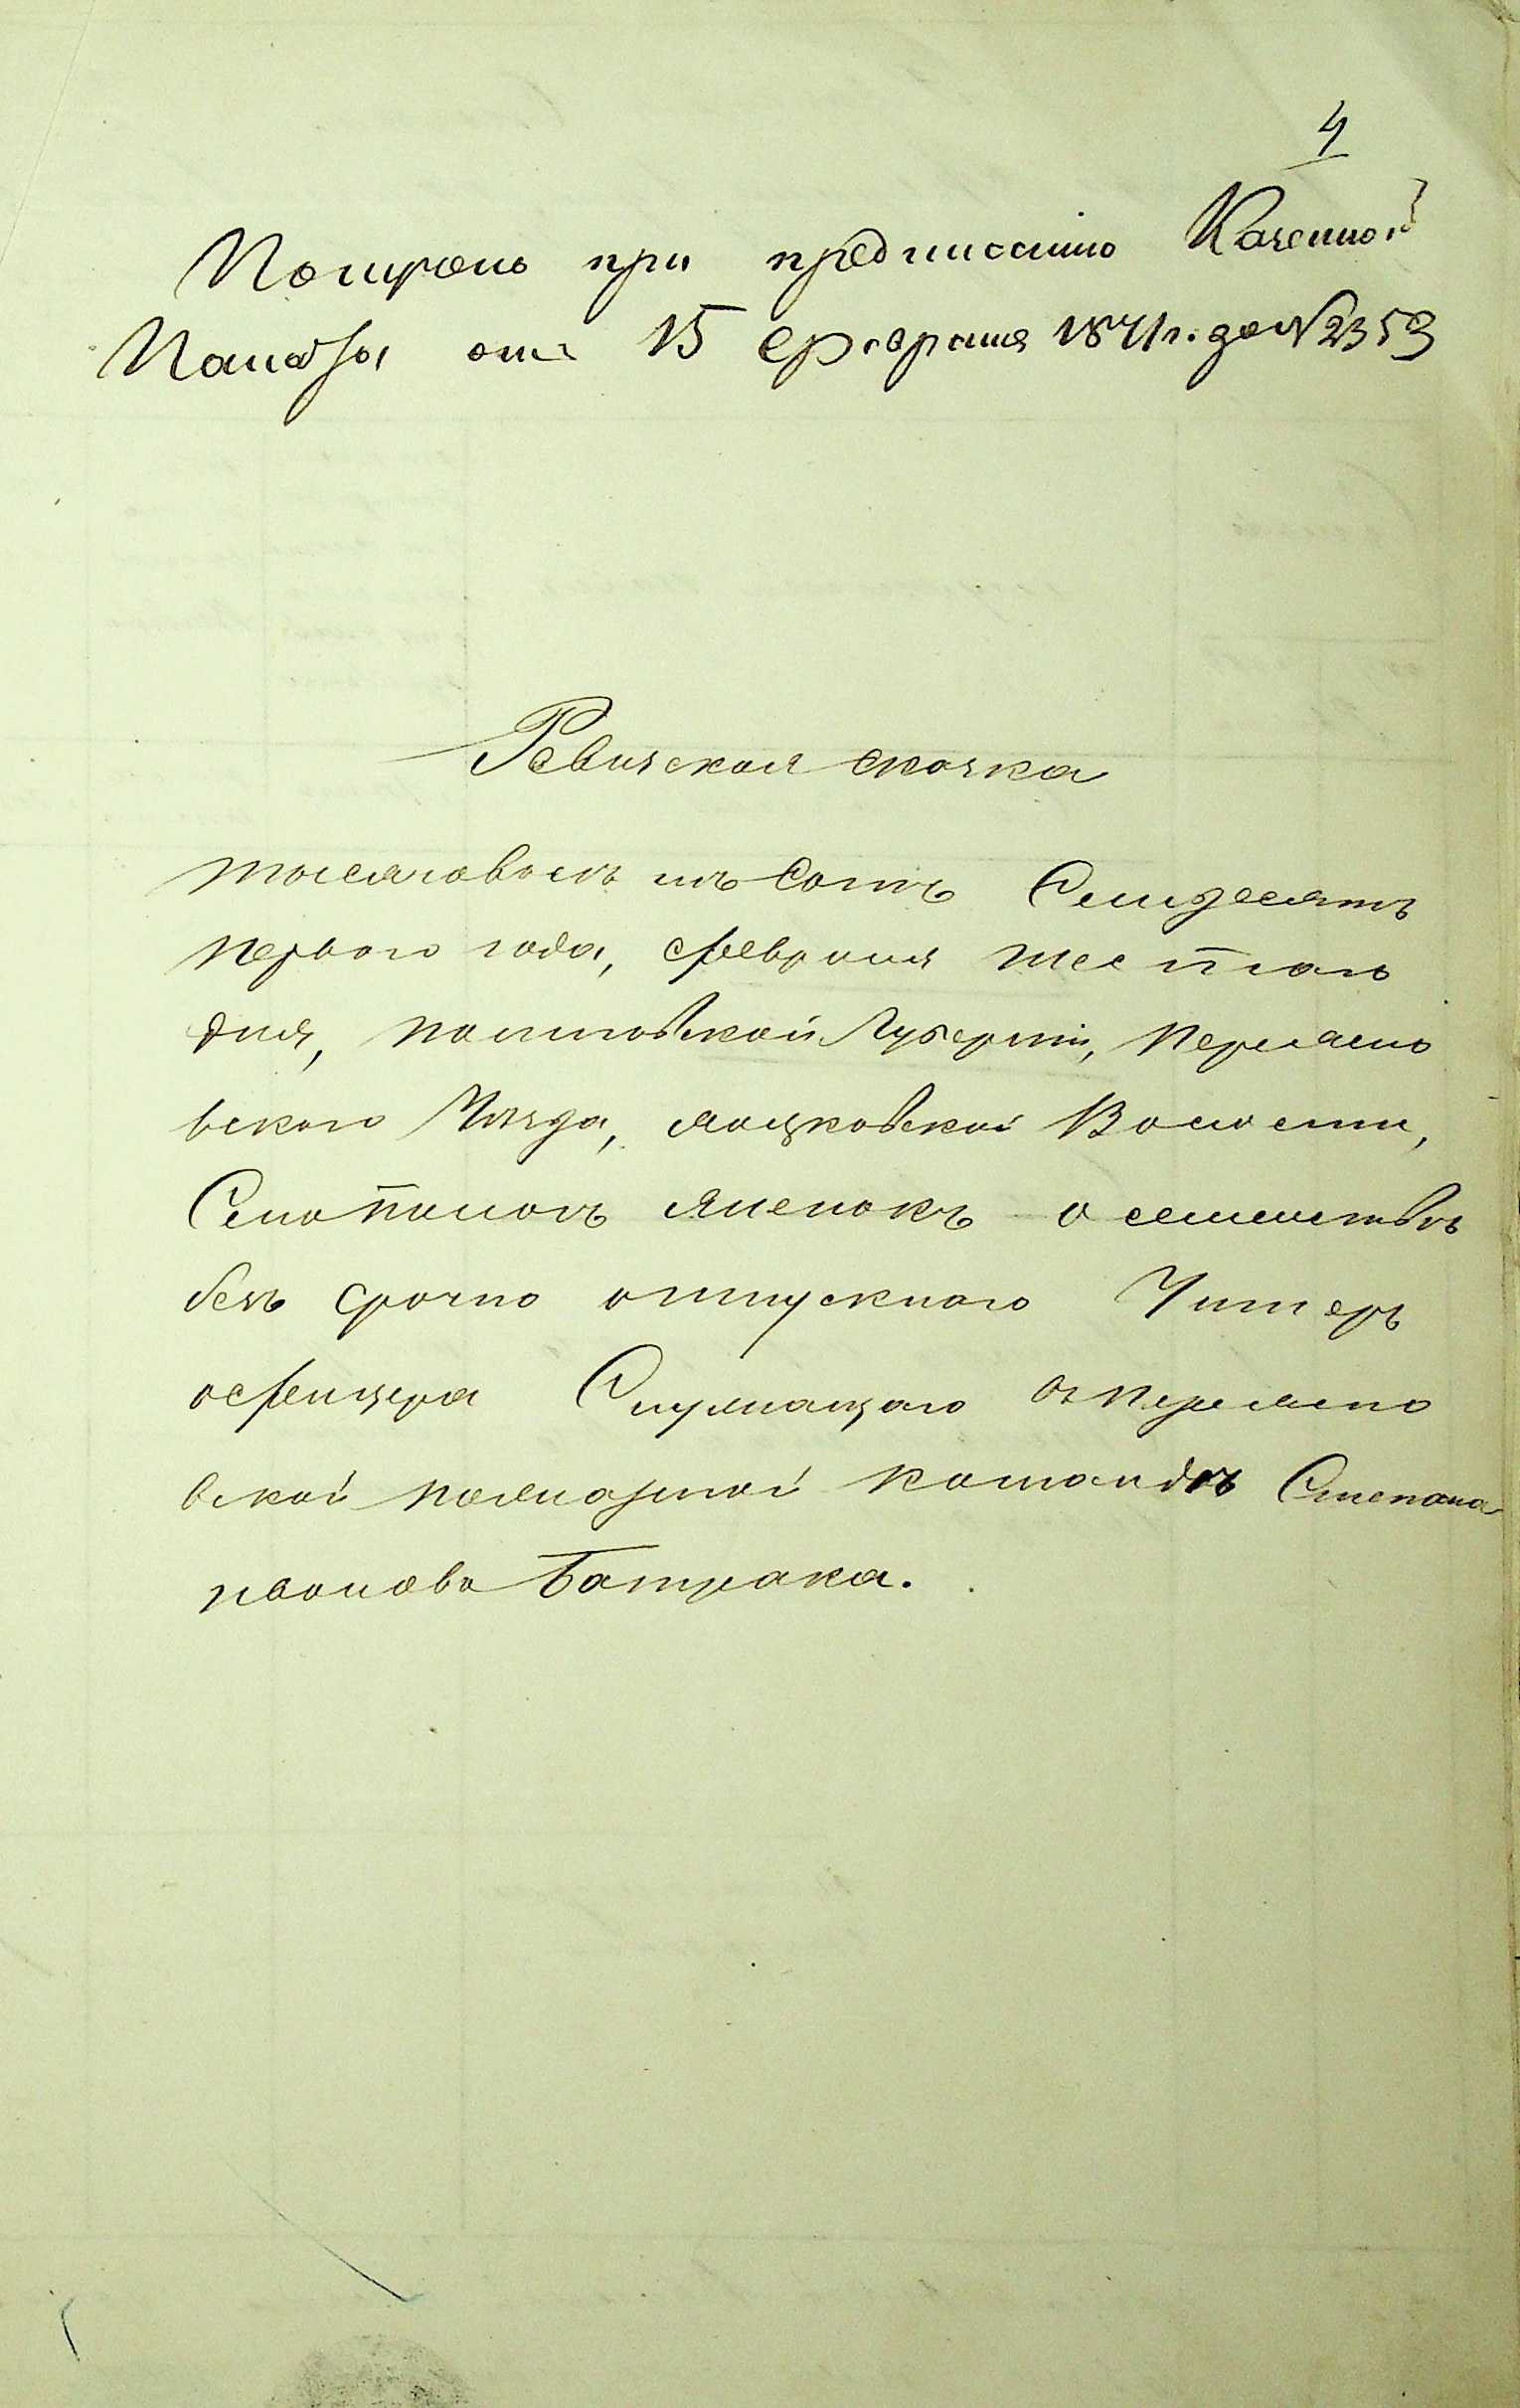 4
Получено при предписанию Казенной
Палаты от 15 февраля 1871 г. за № 2353
Ревизская сказка
тысяча восемъ сотъ Семдесятъ
первого года, февраля шестого
дня, полтовской Губернiи, переясло
вского Уѣзда, ляцковской Волости,
Села панскихъ о семействѣ
безъ срочно отпускного Унтеръ
офецера Служащаго в переясло
вской пожарной командѣ Степана
павлова Батрака.